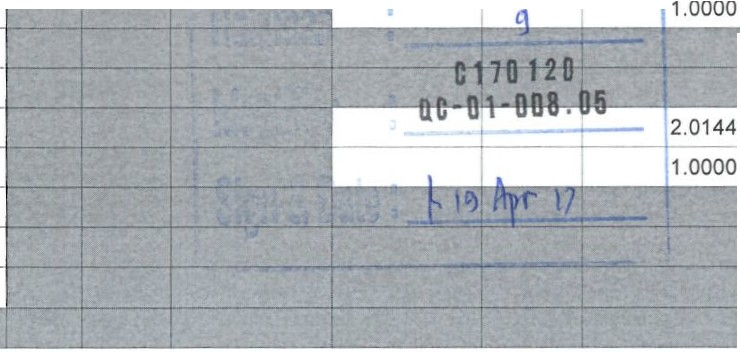 1.0000
9
C170120
QC-01-008.05
2.0144
1.0000
Sign & Date :
19 Apr 17